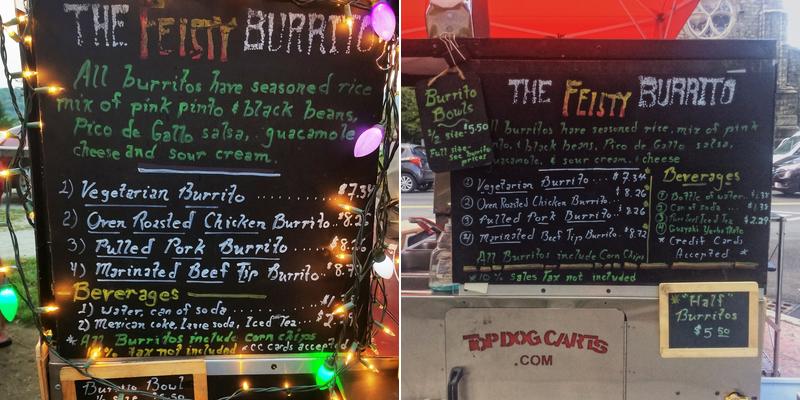 THE FEISTY BURRITO
All burritos have seasoned rice
mix of pink pinto & black beans,
Pico de Gallo salsa, guacamole
cheese and sour cream.
1) Vegetarian Burrito ........ $7.34
2) Oven Roasted Chicken Burrito..
3) Pulled Pork Burrito
4) Marinated Beef Tip Burrito
Beverages
1) Water, can of soda
2) Mexican coke, Iced Tea
* All Burritos include corn chips
% tax not included * CC cards accepted
Burrito Bowl
Burrito
Bowls
1/2 size $5.50
Full size
See burrito
prices
THE FEISTY BURRITO
burritos have seasoned rice, mix of pink
& black beans, Pico de Gallo salsa,
& sour cream. cheese
1) Vegetarian Burrito... $7.34
2) Oven Roasted Chicken Burrito.. $8.26
3) Pulled Pork Burrito... 8.26
4) Marinated Beef Tip Burrito.. $8.72
All Burritos include Corn Chips
% sales Tax not included
Beverages
1) Bottle of water
2) Can soda
$2.29
* Credit Cards
Accepted *
"Half"
Burritos
$5.50
TOP DOG CARTS
.COM